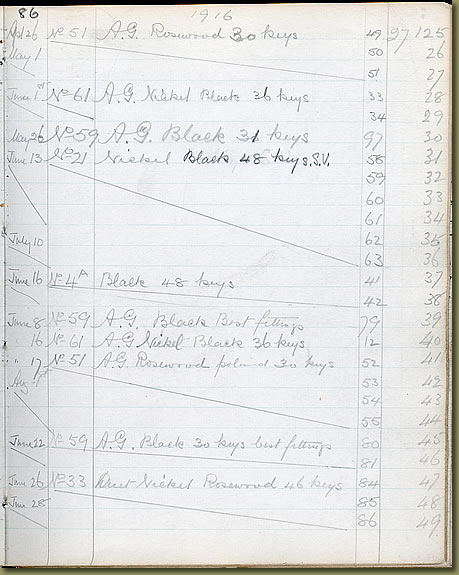 86 1916
Apl 26 No 51 A.G. Rosewood 30 keys 49 27 125
May 1 50 26
51 27
June 1st No 61 A.G. Nickel Black 36 keys 33 28
34 29
May 26 No 59 A.G. Black 31 keys 97 30
June 13 No 21 Nickel Black 48 keys. S.V. 58 31
59 32
60 33
61 34
July 10 62 35
63 36
June 16 No 4A Black 48 keys 41 37
42 38
June 8 No 59 A.G. Black Best fittings 79 39
" 16 No 61 A.G Nickel Black 36 keys 12 40
" 17 No 51 A.G. Rosewood 30 keys 52 41
Aug 1st 53 42
54 43
55 44
June 22 No 59 A.G. Black 30 keys best fittings 80 45
81 46
June 26 No 33 Duet Nickel Rosewood 46 keys 84 47
June 28 85 48
86 49